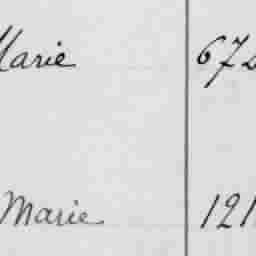 Marie 672
Marie 121